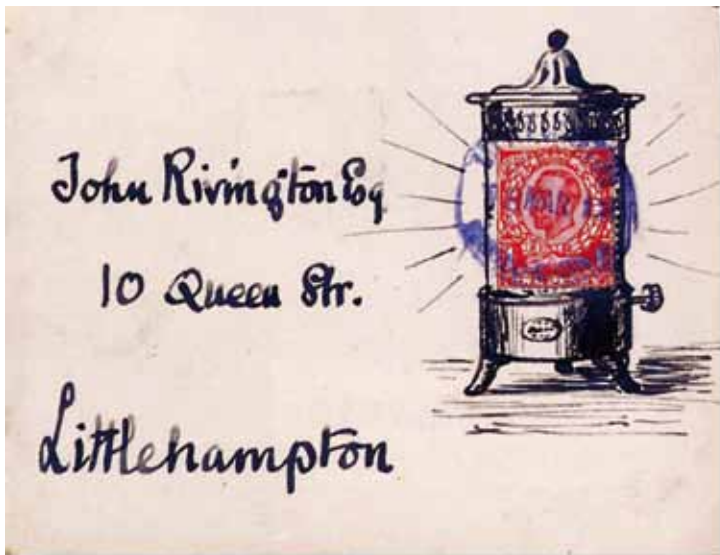 John Rivington Esq
10 Queen Str.
Littlehampton